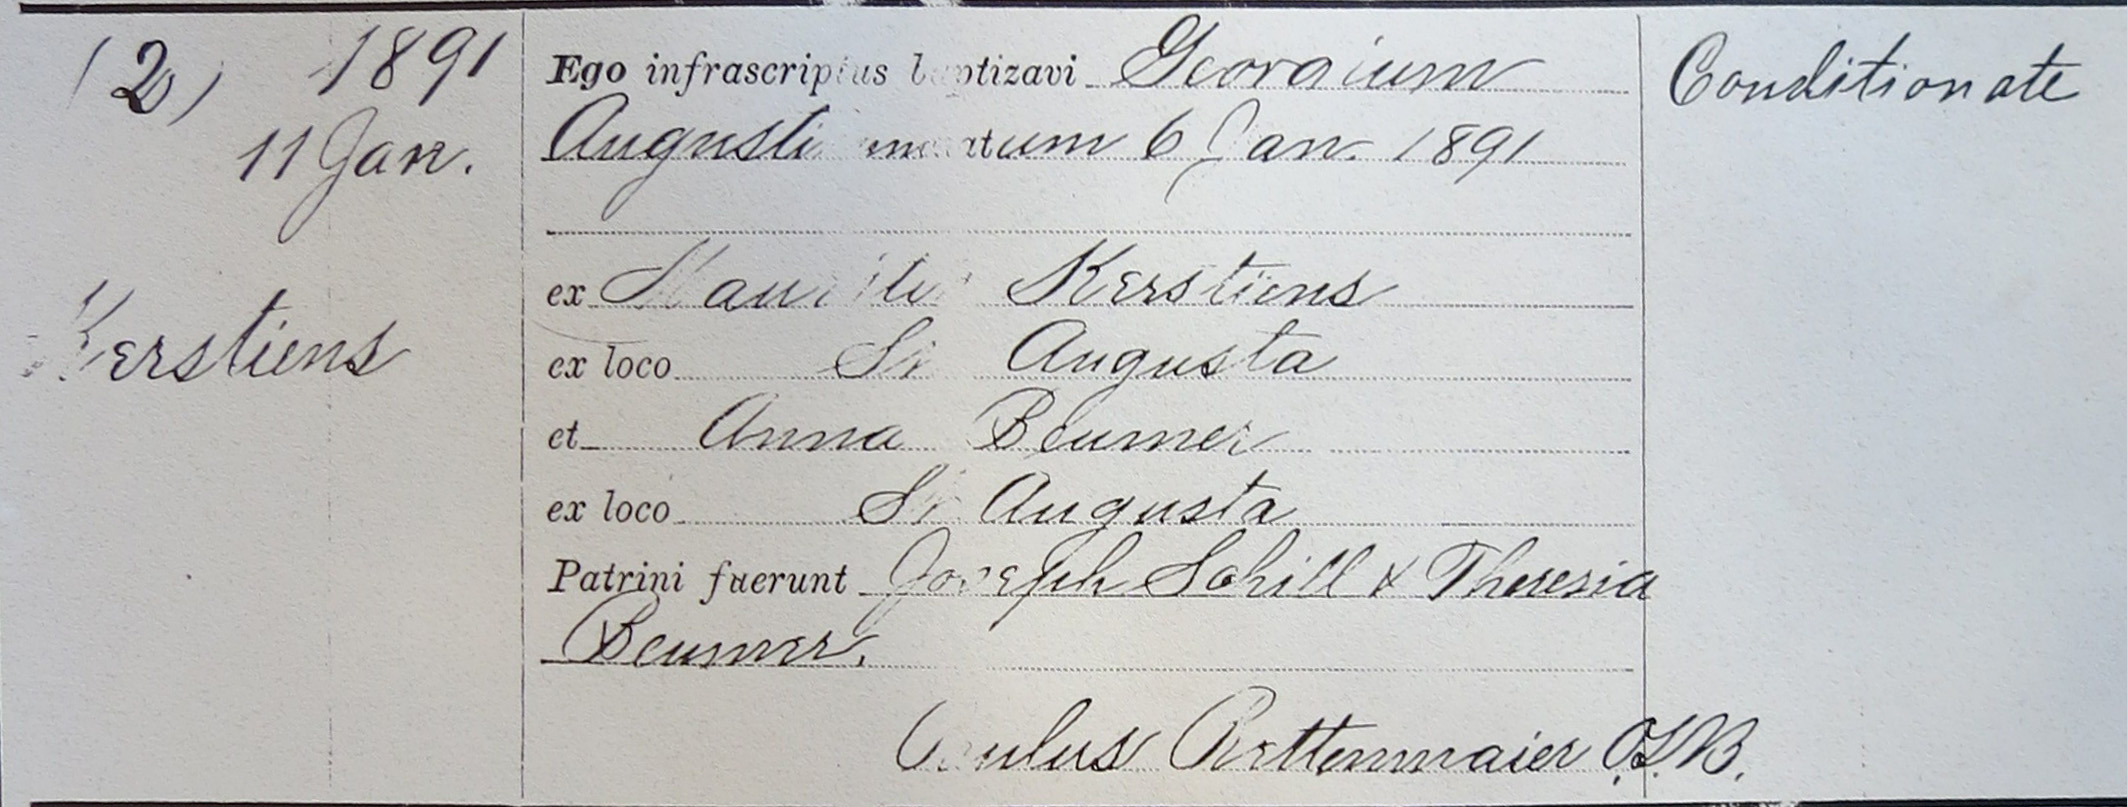 (2) 1891
11 Jan.
Kerstiens
Ego infrascriptus baptizavi Georgium
Augustinum natum 6 Jan. 1891
ex Kerstiens
ex loco St Augusta
et Anna Beumer
ex loco St Augusta
Patrini fuerunt Joseph Schill & Theresia
Beumer.
Paulus Rettenmaier O.S.B.
Conditionate